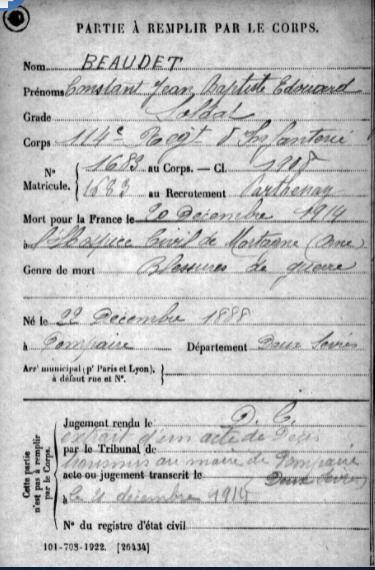 PARTIE À REMPLIR PAR LE CORPS.
Nom BEAUDET
Prénoms Constant Jean Baptiste Edouard
Grade Soldat
Corps 114e Regt d'Infanterie
N° Matricule. { 1683 au Corps. — Cl. 1908
1683 au Recrutement Parthenay
Mort pour la France le 20 Décembre 1914
à l'Hospice Civil de Mortagne (Orne)
Genre de mort Blessures de guerre
Né le 22 Décembre 1888
à Pompaire Département Deux Sèvres
Arrt municipal (pr Paris et Lyon), à défaut rue et N°. }
Cette partie n'est pas à remplir par le Corps.
Jugement rendu le D. C.
extrait d'un acte de Décès
par le Tribunal de
transmis au maire de Pompaire
acte ou jugement transcrit le (Deux Sèvres)
à le 21 décembre
N° du registre d'état civil
101-708-1922. [26434]